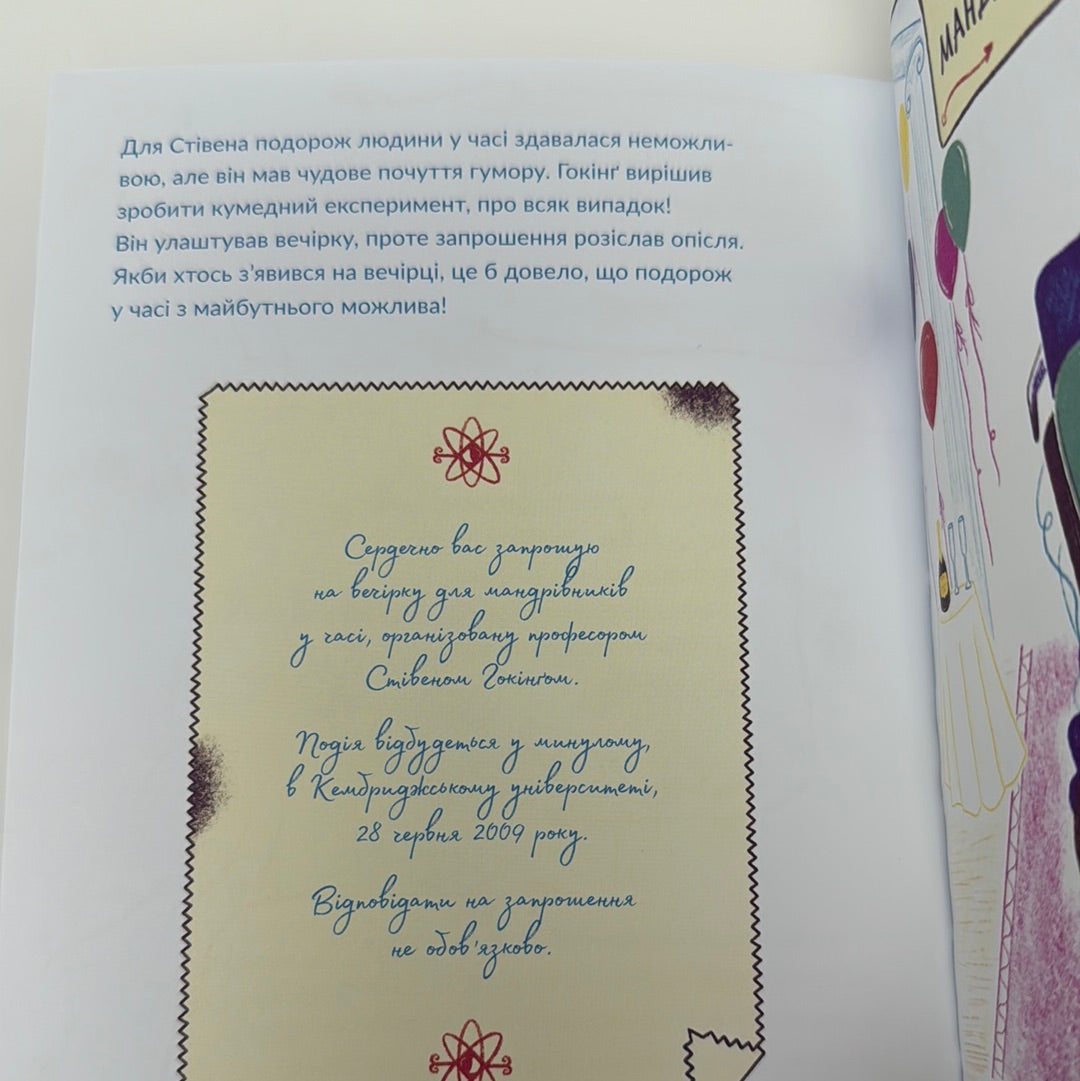 Для Стівена подорож людини у часі здавалася неможли-
вою, але він мав чудове почуття гумору. Гокінґ вирішив
зробити кумедний експеримент, про всяк випадок!
Він улаштував вечірку, проте запрошення розіслав опісля.
Якби хтось з'явився на вечірці, це б довело, що подорож
у часі з майбутнього можлива!
Сердечно вас запрошую
на вечірку для мандрівників
у часі, організовану професором
Стівеном Гокінґом.
Подія відбудеться у минулому,
в Кембриджському університеті,
28 червня 2009 року.
Відповідати на запрошення
не обов'язково.